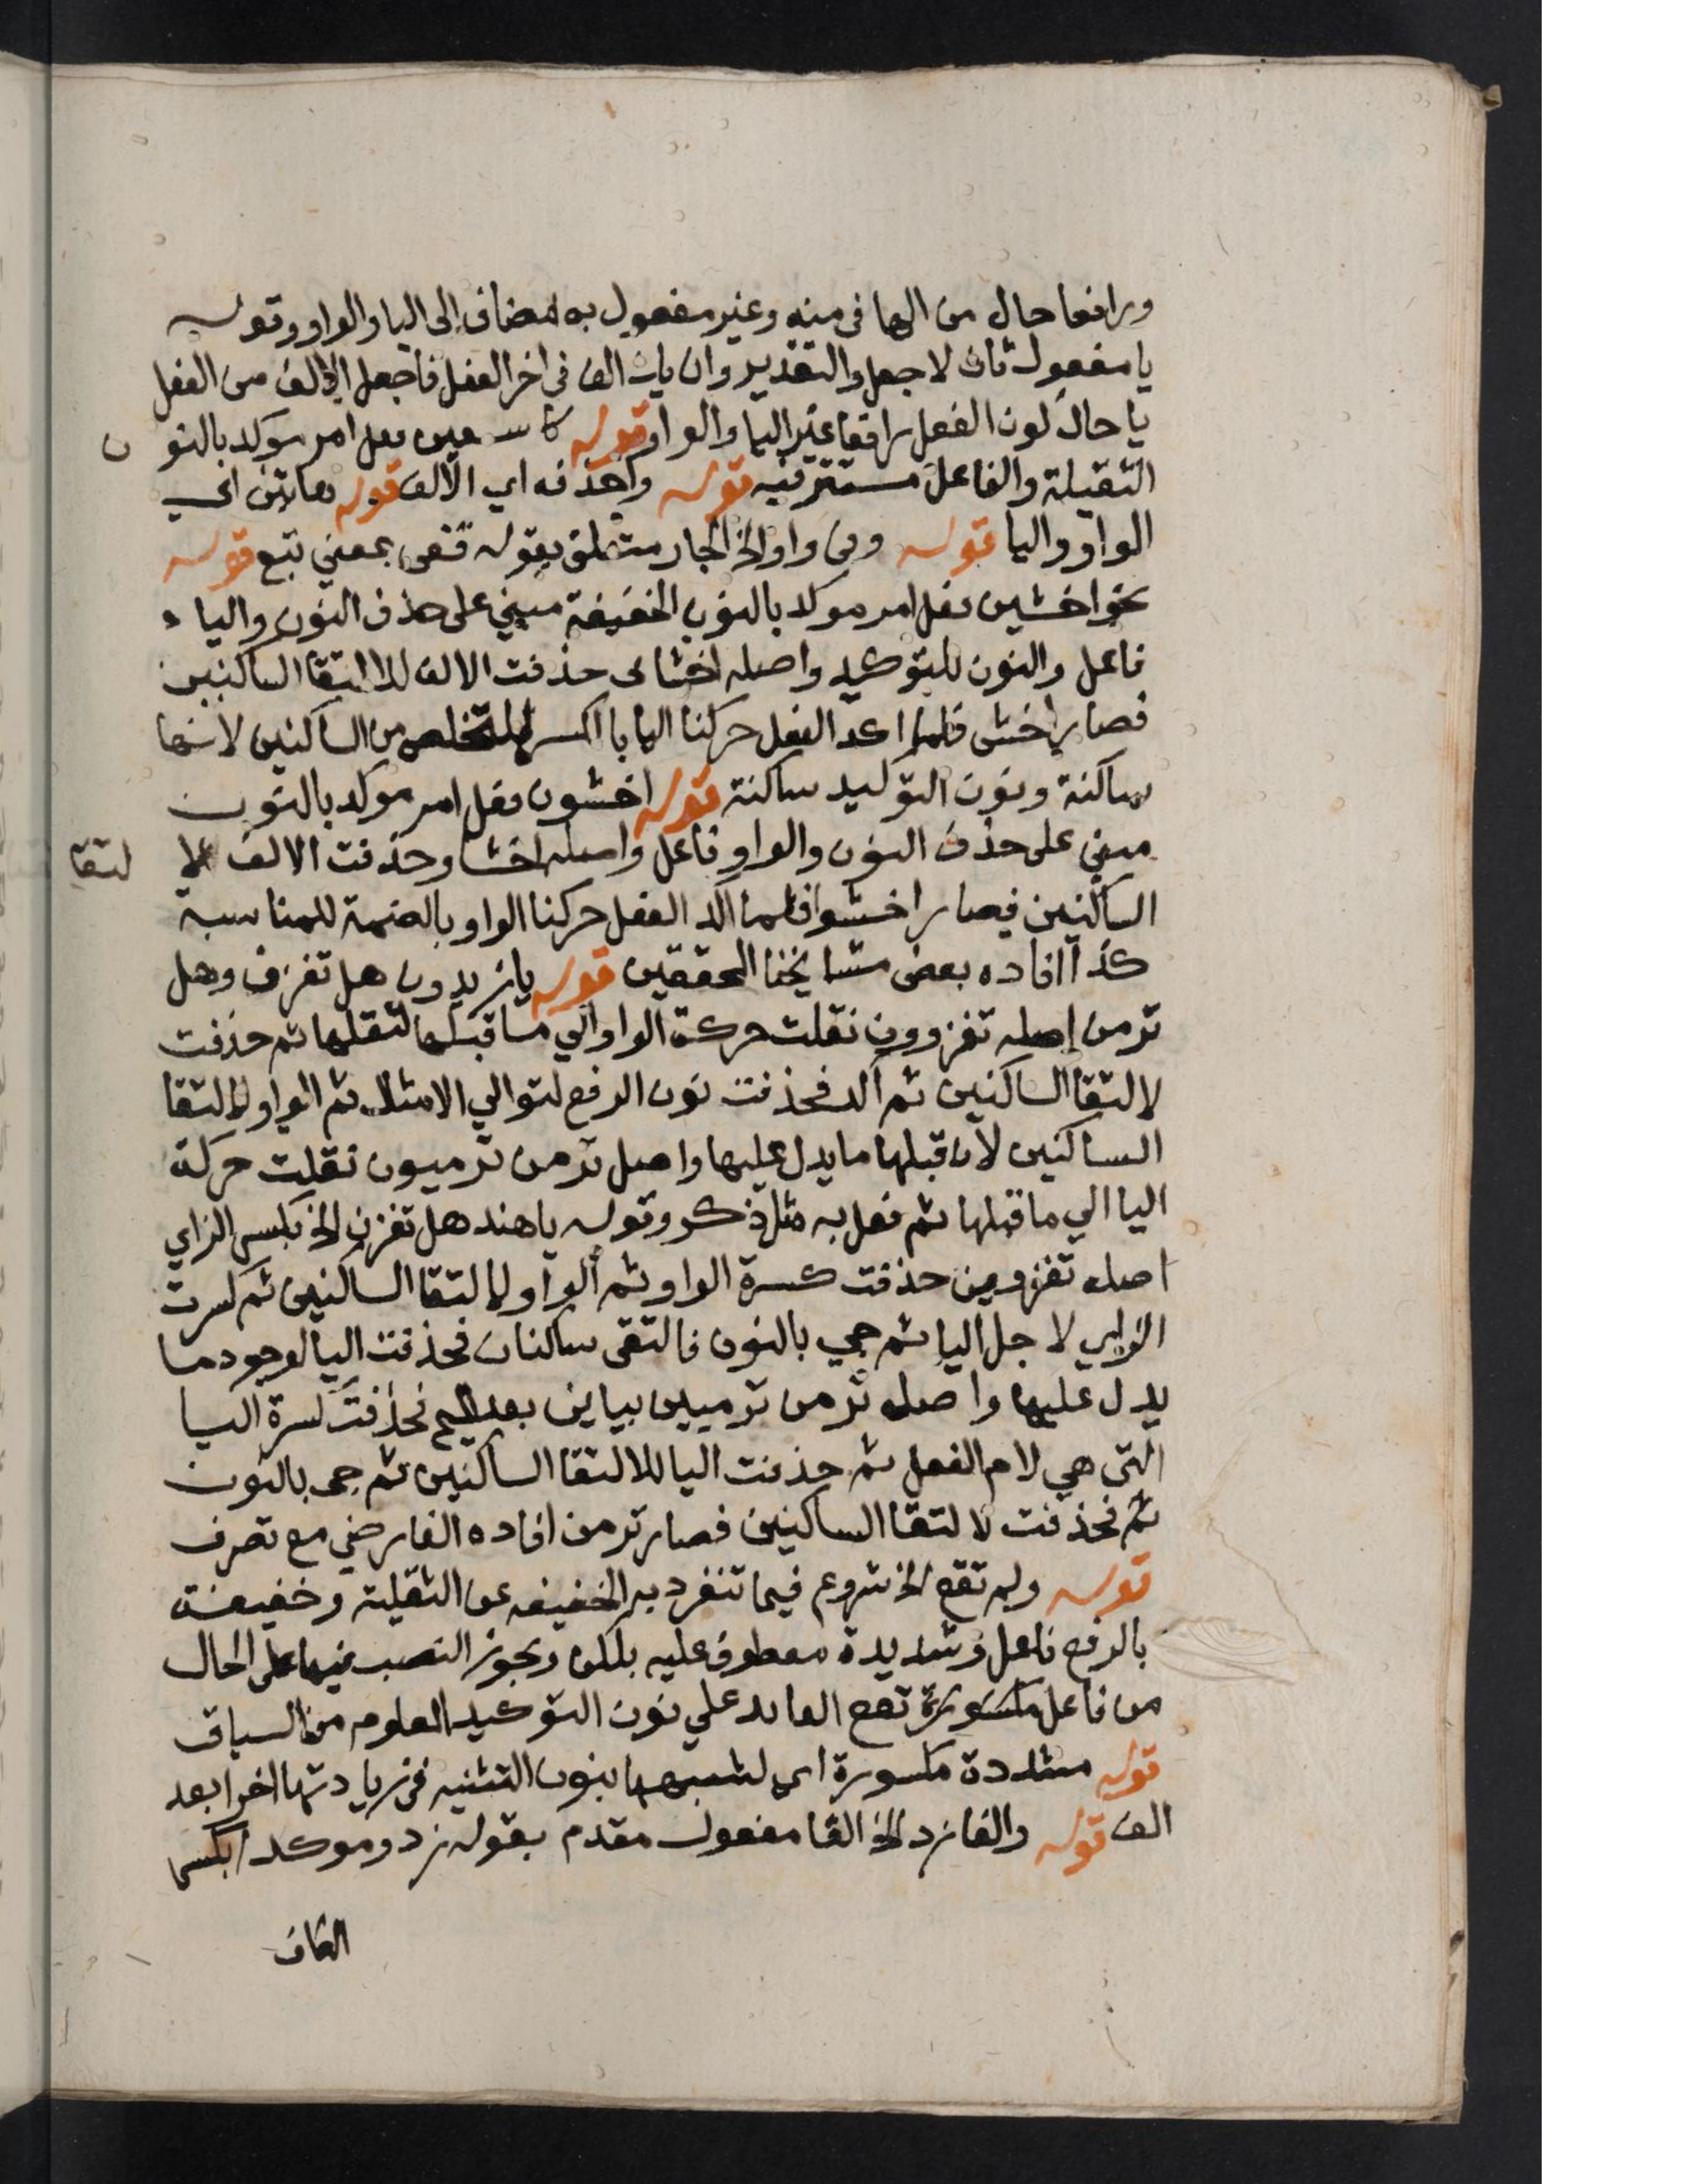 ورافعا حال من الها في منه وغير مفعول به لمضاف الى اليا والواو وقوله
يا مفعول ثان لاجعل والتقدير وان يات الف في اخر الفعل فاجعل الالف من الفعل
يا حال كون الفعل رافعا غير اليا والواو قوله فعل امر موكد بالنو ن
الثقيلة والفاعل مستتر فيه قوله واحذفه اي الالف قوله هاتين اي
الواو واليا قوله وفي واو الخ الجار متعلق بقوله قفي بمعني تبع قوله
نحو اخشين فعل امر موكد بالنون الخفيفة مبني على حذف النون والياء
فاعل والنون للتوكيد واصله اخشاى حذفت الالف لالتقا الساكنين
فصار اخشى فلما اكد الفعل حركنا اليا بالكسر للتخلص من الساكنين لانها
ساكنة ونون التوكيد ساكنة قوله اخشون فعل امر موكد بالنون
مبني على حذف النون والواو فاعل واصله اخشاو حذفت الالف لا لتقا
الساكنين فصار اخشوا فلما اكد الفعل حركنا الواو بالضمة للمناسبة
كذا افاده بعض مشايخنا المحققين قوله يا زيدون هل تغزن وهل
ترمن اصله تغزوون نقلت حركة الواو الي ما قبلها لثقلها ثم حذفت
لالتقا الساكنين ثم اكد فحذفت نون الرفع لتوالي الامثال ثم الواو لالتقا
الساكنين لان قبلها ما يدل عليها واصل ترمن ترميون نقلت حركة
اليا الي ما قبلها ثم فعل به مثل ذكر وقوله يا هند هل تغزن الخ بكسر الزاي
اصله تغزوين حذفت كسرة الواو ثم الواو لالتقا الساكنين ثم كسرت
الزاي لاجل اليا ثم جي بالنون فالتقى ساكنان فحذفت اليا لوجود ما
يدل عليها واصل ترمن ترميين بياين بعد الميم فحذفت كسرة اليا
التي هي لام الفعل ثم حذفت اليا لالتقا الساكنين ثم جي بالنون
ثم فحذفت لالتقا الساكنين فصار ترمن افاده الفارضي مع تصرف
قوله ولم تقع الخ شروع فيما تنفرد به الخفيفه عن الثقيلة وخفيفة
بالرفع فاعل وشديدة معطوف عليه بلكن ويجوز النصب فيهما على الحال
من فاعل تقع العايد علي نون التوكيد المعلوم من السياق
قوله مشددة مكسورة اي لشبهها بنون التثنيه في زيادتها اخرا بعد
الف قوله والفا زد الخ الفا مفعول مقدم بقوله زد وموكدا بكسر
الكاف